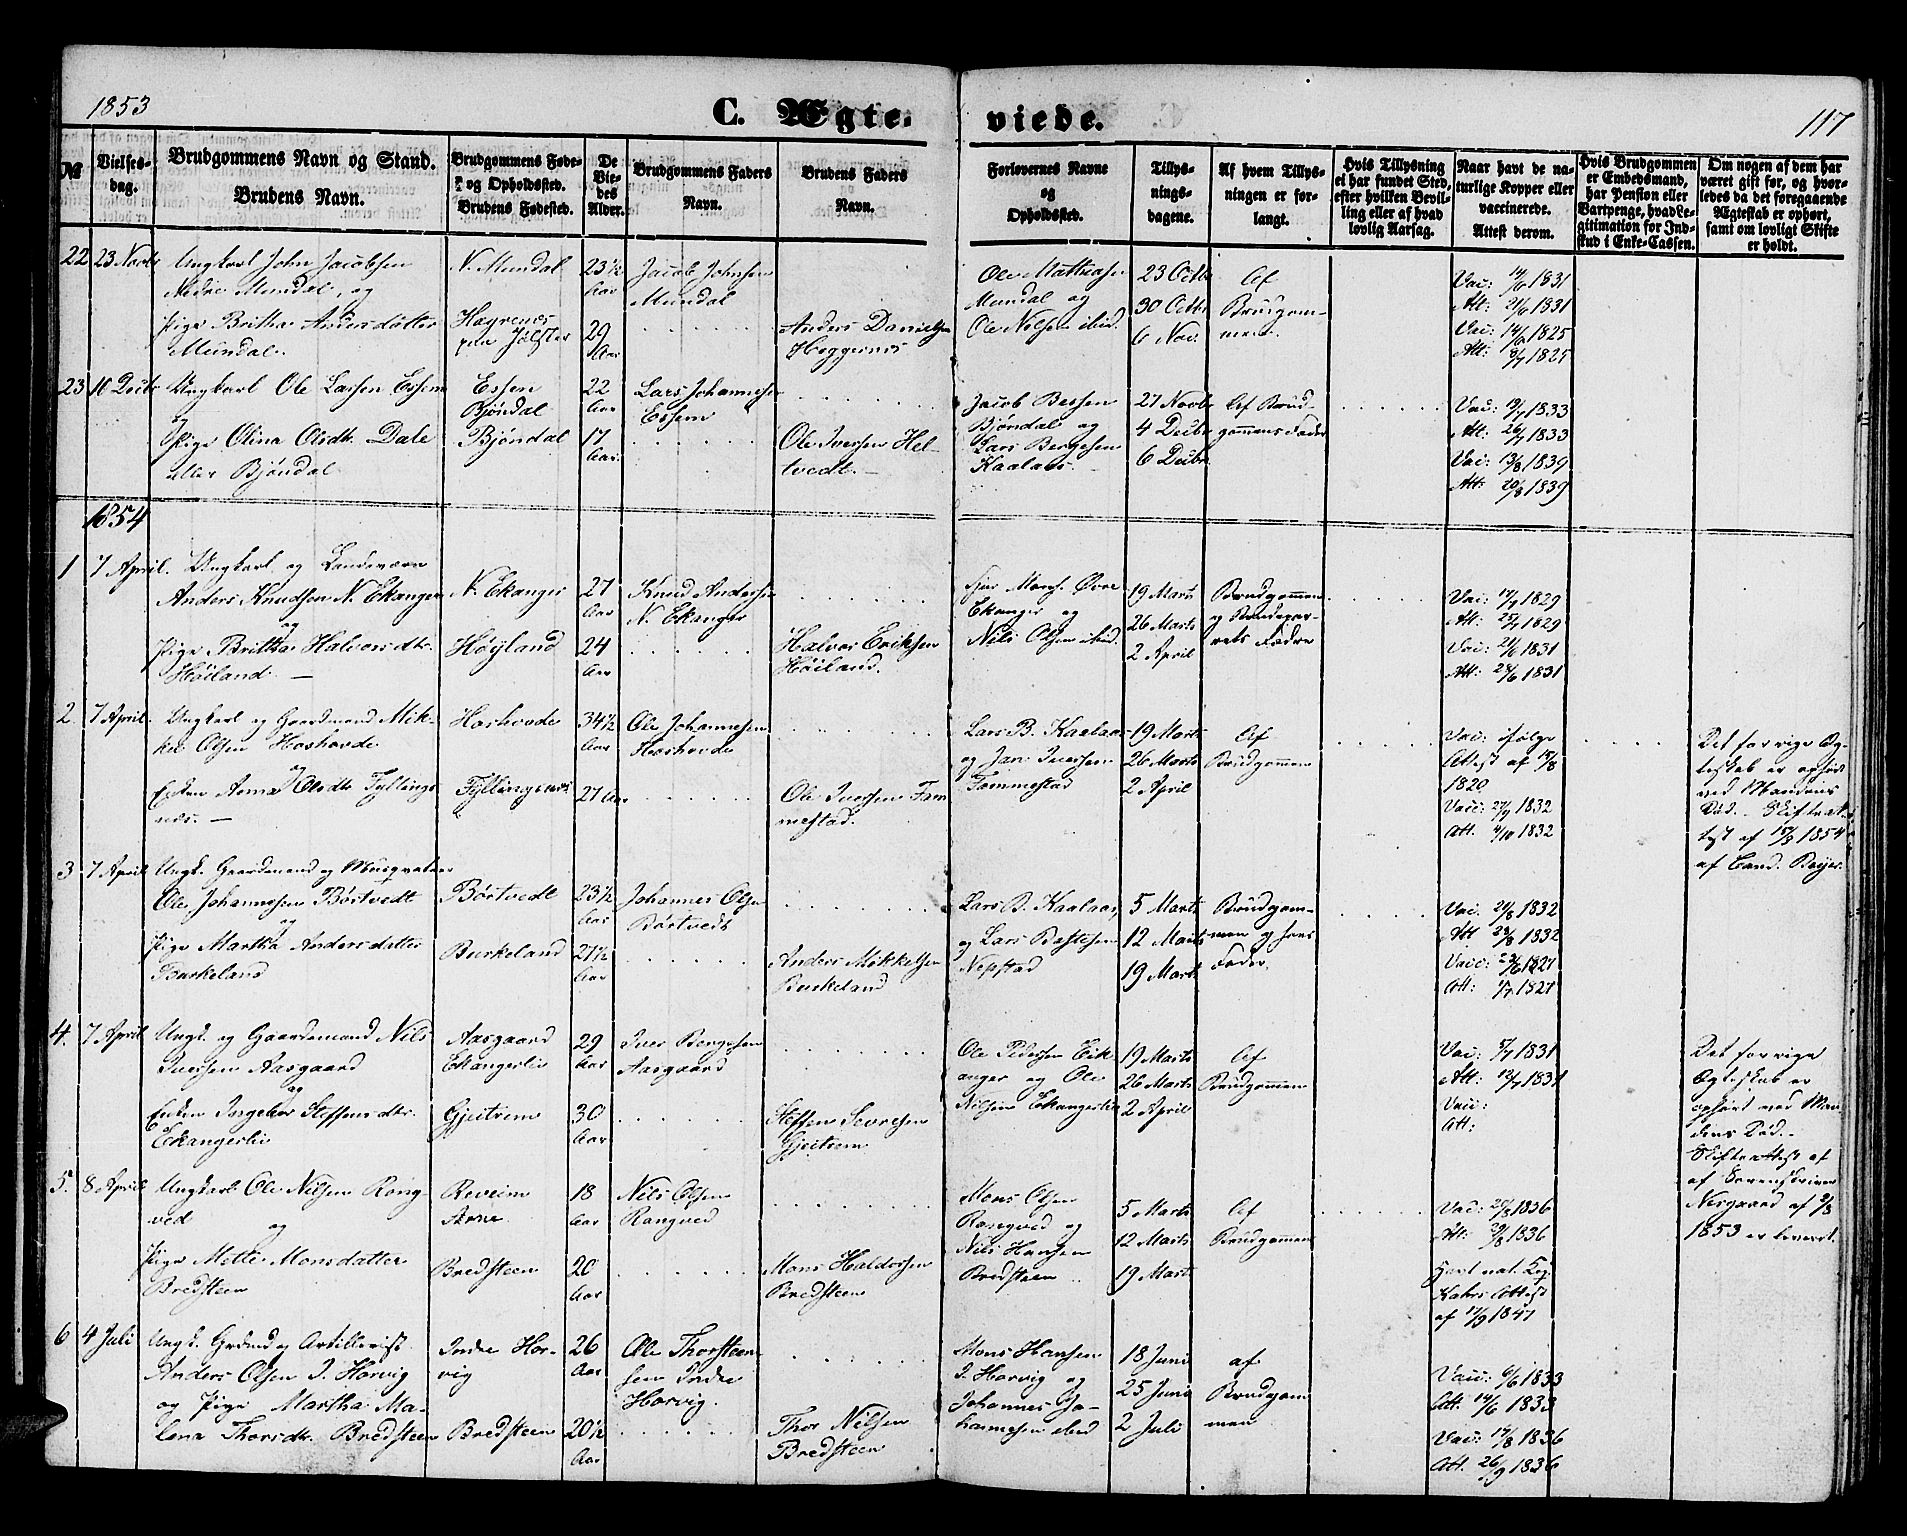 1853
C. Ægte-
viede.
117
№
Vielses-
dag.
Brudgommens Navn og Stand.
Brudens Navn.
Brudgommens Føde-
og Opholdssted.
Brudens Fødested.
De
Vie-
des
Alder.
Brudgommens Faders
Navn.
Brudens Faders
Navn.
Forlovernes Navne
og
Opholdssted.
Tillys-
nings-
dagene.
Af hvem Tillys-
ningen er for-
langt.
Hvis Tillysning
ei har fundet Sted,
efter hvilken Bevil-
ling eller af hvad
lovlig Aarsag.
Naar havt de na-
turlige Kopper eller
vaccinerede.
Attest derom.
Hvis Brudgommen
er Embedsmand,
har Pension eller
Vartpenge, hvad Le-
gitimation for Ind-
skud i Enke-Cassen.
Om nogen af dem har
været gift før, og hvor-
ledes da det foregaaende
Ægteskab er ophørt,
samt om lovligt Skifte
er holdt.
22 23 Novb
Ungkarl John Jacobsen
Nedre Mundal, og
Pige Britha Andersdatter
Mundal.
N. Mundal
Jølster
23½
Aar
29
Aar
Jacob Johnsen
Mundal
Anders Danielsen
Heggernes
Ole Mathiasen
Mundal og
Ole Nilsen ibid.
23 Octb
30 Octb
6 Nov.
Af
Brudgom-
men.
Vac: 14/6 1831
Att: 21/6 1831
Vac: 14/6 1825
Att: 8/7 1825
23 16 Decb
Ungkarl Ole Larsen Essem
og
Pige Olina Olsdtr Dale
eller Bjöndal
Essen
Bjöndal
Bjöndal
22
Aar
17
Aar
Lars Johannesen
Essem
Ole Iversen Hel-
tvedt.
Jacob Bessen
Bjöndal og
Lars Bergesen
Kaalaas.
27 Novb
4 Decbr
6 Decbr
Af Brud-
gommens Fader
Vac: 19/7 1833
Att: 26/7 1833
Vac: 13/8 1839
Att: 20/8 1839
1854
1 7 April.
Ungkarl og Landeværn
Anders Knudsen N. Ekanger
og
Pige Brittha Halvorsdtr.
Höiland.
N. Ekanger
Höyland
27
Aar
24
Aar
Knud Andersen
N. Ekanger
Halvor Eriksen
Höiland.
Øvre
Ekanger og
Nils Olsen ibid.
19 Marts
26 Marts
2 April
Brudgommen
og
Fader
Vac: 17/7 1829
Att: 25/7 1829
Vac: 21/6 1831
Att: 28/6 1831
2. 7 April.
Ungkarl og Gaardmand Mik-
kel Olsen Hoshovde
og
Enken Anna Olsdtr Fyllings
næs.
Hoshovde
Fyllingsnæs
34½
Aar
27 Aar
Ole Johannesen
Hoshovde
Ole Iversen Fam
mestad.
Lars B. Kaalaas
og Jan Iversen
Fammestad
19 Marts
26 Marts
2 April
Af
Brudgommen
Vac: ifölge
Attest af 15/8
1820
Vacc: 27/9 1832
Att. 4/10 1832
Det forrige Æg-
teskab er ophört
ved Mandens
Död. Skifteat-
test af 15/3 1854
af Cand. Beyer.
3 7 April
Ungk. Gaardmand og Musqueteer
Ole Johannesen Börtvedt
og
Pige Martha Andersdatter
Burkeland
Börtvedt
Burkeland
23½
Aar
27½
Aar
Johannes Olsen
Börtvedt
Anders Mikkelsen
Burkeland
Lars B. Kaalaas,
og Lars Bastesen
Nepstad
5 Marts
12 Marts
19 Marts
Brudgom-
men og hans
Fader.
Vac. 21/8 1832
Att 28/8 1832
4. 7 April
Ungk. og Gaardmand Nils
Iversen Aasgaard
og
Enken Ingebor Steffensdtr.
Ekangerlie
Aasgaard
Ekangerlie
Gjeitrem
29
Aar
30
Aar
Iver Bergesen
Aasgaard
Steffen Sevresen
Gjeitrem
Ole Pedersen Eik
anger og Ole
Nilsen Ekangerlie
19 Marts
26 Marts
2 April
Af
Brudgommen
Vac: 5/7 1831
Att: 12/7 1831
Vacc:
Att:
Det forrige
Ægteskab er
ophört ved Man-
dens Död.
Skifteattest af
af Sorenskriver
Nesgaard af
1853 er leveret.
5. 8 April
Ungkarl Ole Nilsen Rong-
ved
og
Pige Mette Monsdatter
Bredsteen
Reveim
Arne
Bredsteen
18
Aar
20
Aar
Nils Olsen
Rangved
Mons Haldorsen
Bredsteen
Mons Olsen
Rangved og
Nils Hansen
Bredsteen
5 Marts
12 Marts
19 Marts
Af
Brudgommen
Vac: 22/8 1836
Att: 29/8 1836
Havt nat. Kop.
Kahrs Attest
af 17/9 1847
6 4 Juli
Ungk. Grdmd og Artillerist
Anders Olsen I. Horvig
og Pige Martha Ma-
lena Thorsdtr. Bredsteen
Indre Hor-
vig
Bredsteen
26
Aar
20½
Aar
Ole Thorsteen
sen Indre
Horvig.
Thor Nilsen
Bredsteen
Mons Hansen
I. Horvig og
Johannes Jo-
hannesen ibid
18 Juni
25 Juni
2 Juli
af
Brudgom
men
Vacc: 6/6 1833
Att. 14/6 1833
Vacc: 19/8 1836
Att. 26/9 1836